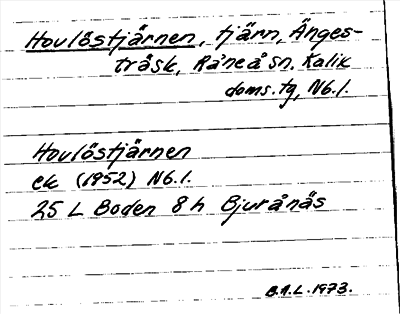 Hovlöstjärnen, tjärn, Änges-
träsk, Råneå sn. Kalix
doms. tg, Nb.l.
Hovlöstjärnen
ek (1952) Nb.l.
25 L Boden 8h Bjurånäs
B.A.L. 1973.